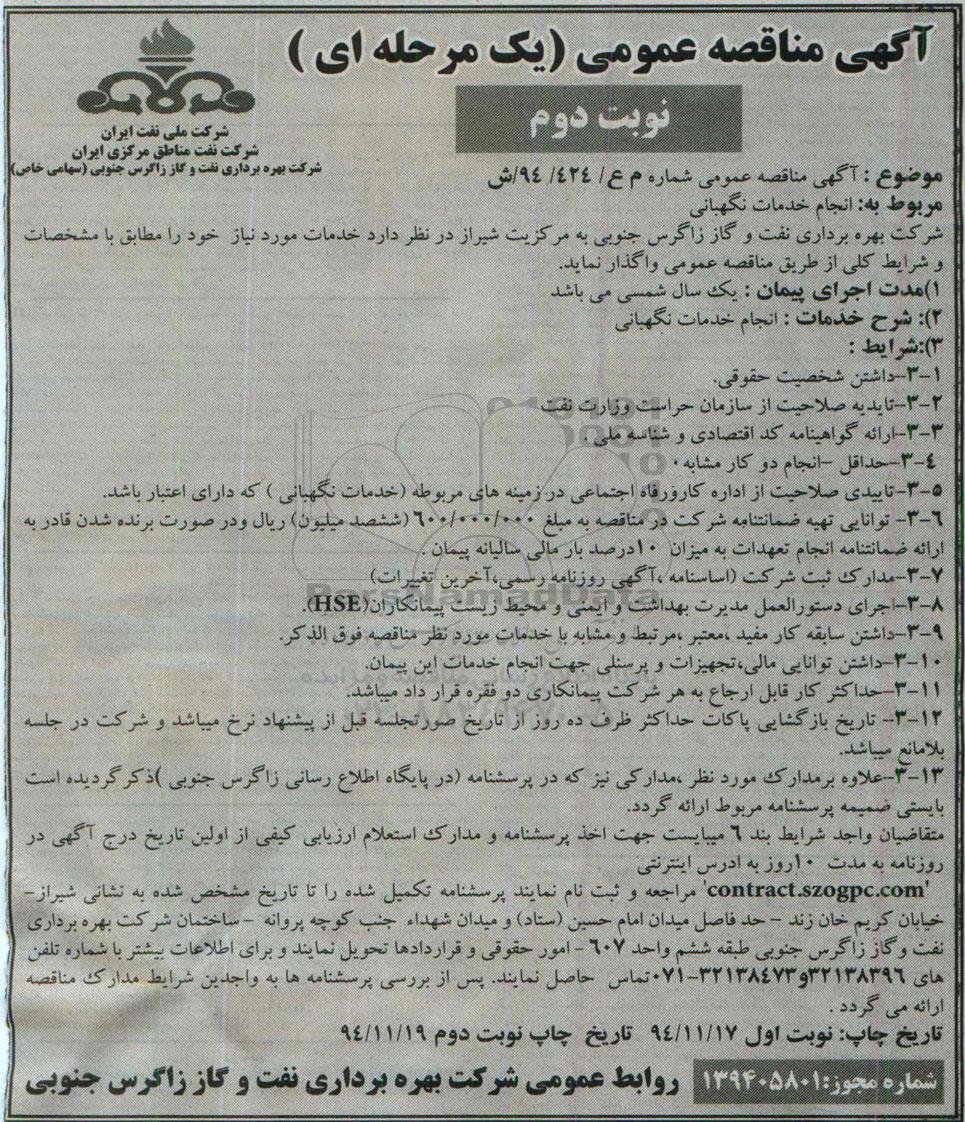 آگهی مناقصه عمومی (یک مرحله ای )
نوبت دوم
شرکت ملی نفت ایران
شرکت نفت مناطق مرکزی ایران
شرکت بهره برداری نفت و گاز زاگرس جنوبی (سهامی خاص)
موضوع : آگهی مناقصه عمومی شماره م ع/ ٤٢٤/ ٩٤/ش
مربوط به: انجام خدمات نگهبانی
شرکت بهره برداری نفت و گاز زاگرس جنوبی به مرکزیت شیراز در نظر دارد خدمات مورد نیاز خود را مطابق با مشخصات
و شرایط کلی از طریق مناقصه عمومی واگذار نماید.
١)مدت اجرای پیمان : یک سال شمسی می باشد
٢): شرح خدمات : انجام خدمات نگهبانی
٣):شرایط :
٣-١-داشتن شخصیت حقوقی.
٣-٢-تایدیه صلاحیت از سازمان حراست وزارت نفت
٣-٣-ارائه گواهینامه کد اقتصادی و شناسه ملی .
٣-٤-حداقل -انجام دو کار مشابه٠
٣-٥-تاییدی صلاحیت از اداره کارورفاه اجتماعی در زمینه های مربوطه (خدمات نگهبانی ) که دارای اعتبار باشد.
٣-٦- توانایی تهیه ضمانتنامه شرکت در مناقصه به مبلغ ٦٠٠/٠٠٠/٠٠٠ (ششصد میلیون) ریال ودر صورت برنده شدن قادر به
ارائه ضمانتنامه انجام تعهدات به میزان ١٠درصد بار مالی سالیانه پیمان .
٣-٧-مدارک ثبت شرکت (اساسنامه ،آگهی روزنامه رسمی،آخرین تغییرات)
٣-٨-اجرای دستورالعمل مدیرت بهداشت و ایمنی و محیط زیست پیمانکاران(HSE).
٣-٩-داشتن سابقه کار مفید ،معتبر ،مرتبط و مشابه با خدمات مورد نظر مناقصه فوق الذکر.
٣-١٠-داشتن توانایی مالی،تجهیزات و پرسنلی جهت انجام خدمات این پیمان.
٣-١١-حداکثر کار قابل ارجاع به هر شرکت پیمانکاری دو فقره قرار داد میباشد.
٣-١٢- تاریخ بازگشایی پاکات حداکثر ظرف ده روز از تاریخ صورتجلسه قبل از پیشنهاد نرخ میباشد و شرکت در جلسه
بلامانع میباشد.
٣-١٣-علاوه برمدارک مورد نظر ،مدارکی نیز که در پرسشنامه (در پایگاه اطلاع رسانی زاگرس جنوبی )ذکرگردیده است
بایستی ضمیمه پرسشنامه مربوط ارائه گردد.
متقاضیان واجد شرایط بند ٦ میبایست جهت اخذ پرسشنامه و مدارک استعلام ارزیابی کیفی از اولین تاریخ درج آگهی در
روزنامه به مدت ١٠روز به ادرس اینترنتی
'contract.szogpc.com' مراجعه و ثبت نام نمایند پرسشنامه تکمیل شده را تا تاریخ مشخص شده به نشانی شیراز-
خیابان کریم خان زند - حد فاصل میدان امام حسین (ستاد) و میدان شهداء جنب کوچه پروانه - ساختمان شرکت بهره برداری
نفت وگاز زاگرس جنوبی طبقه ششم واحد ٦٠٧ - امور حقوقی و قراردادها تحویل نمایند و برای اطلاعات بیشتر با شماره تلفن
های ٣٢١٣٨٣٩٦و٣٢١٣٨٤٧٣-٠٧١تماس حاصل نمایند. پس از بررسی پرسشنامه ها به واجدین شرایط مدارک مناقصه
ارائه می گردد .
تاریخ چاپ: نوبت اول ٩٤/١١/١٧ تاریخ چاپ نوبت دوم ٩٤/١١/١٩
شماره مجوز:١٣٩٤٠٥٨٠١
روابط عمومی شرکت بهره برداری نفت و گاز زاگرس جنوبی
ParsNamadData